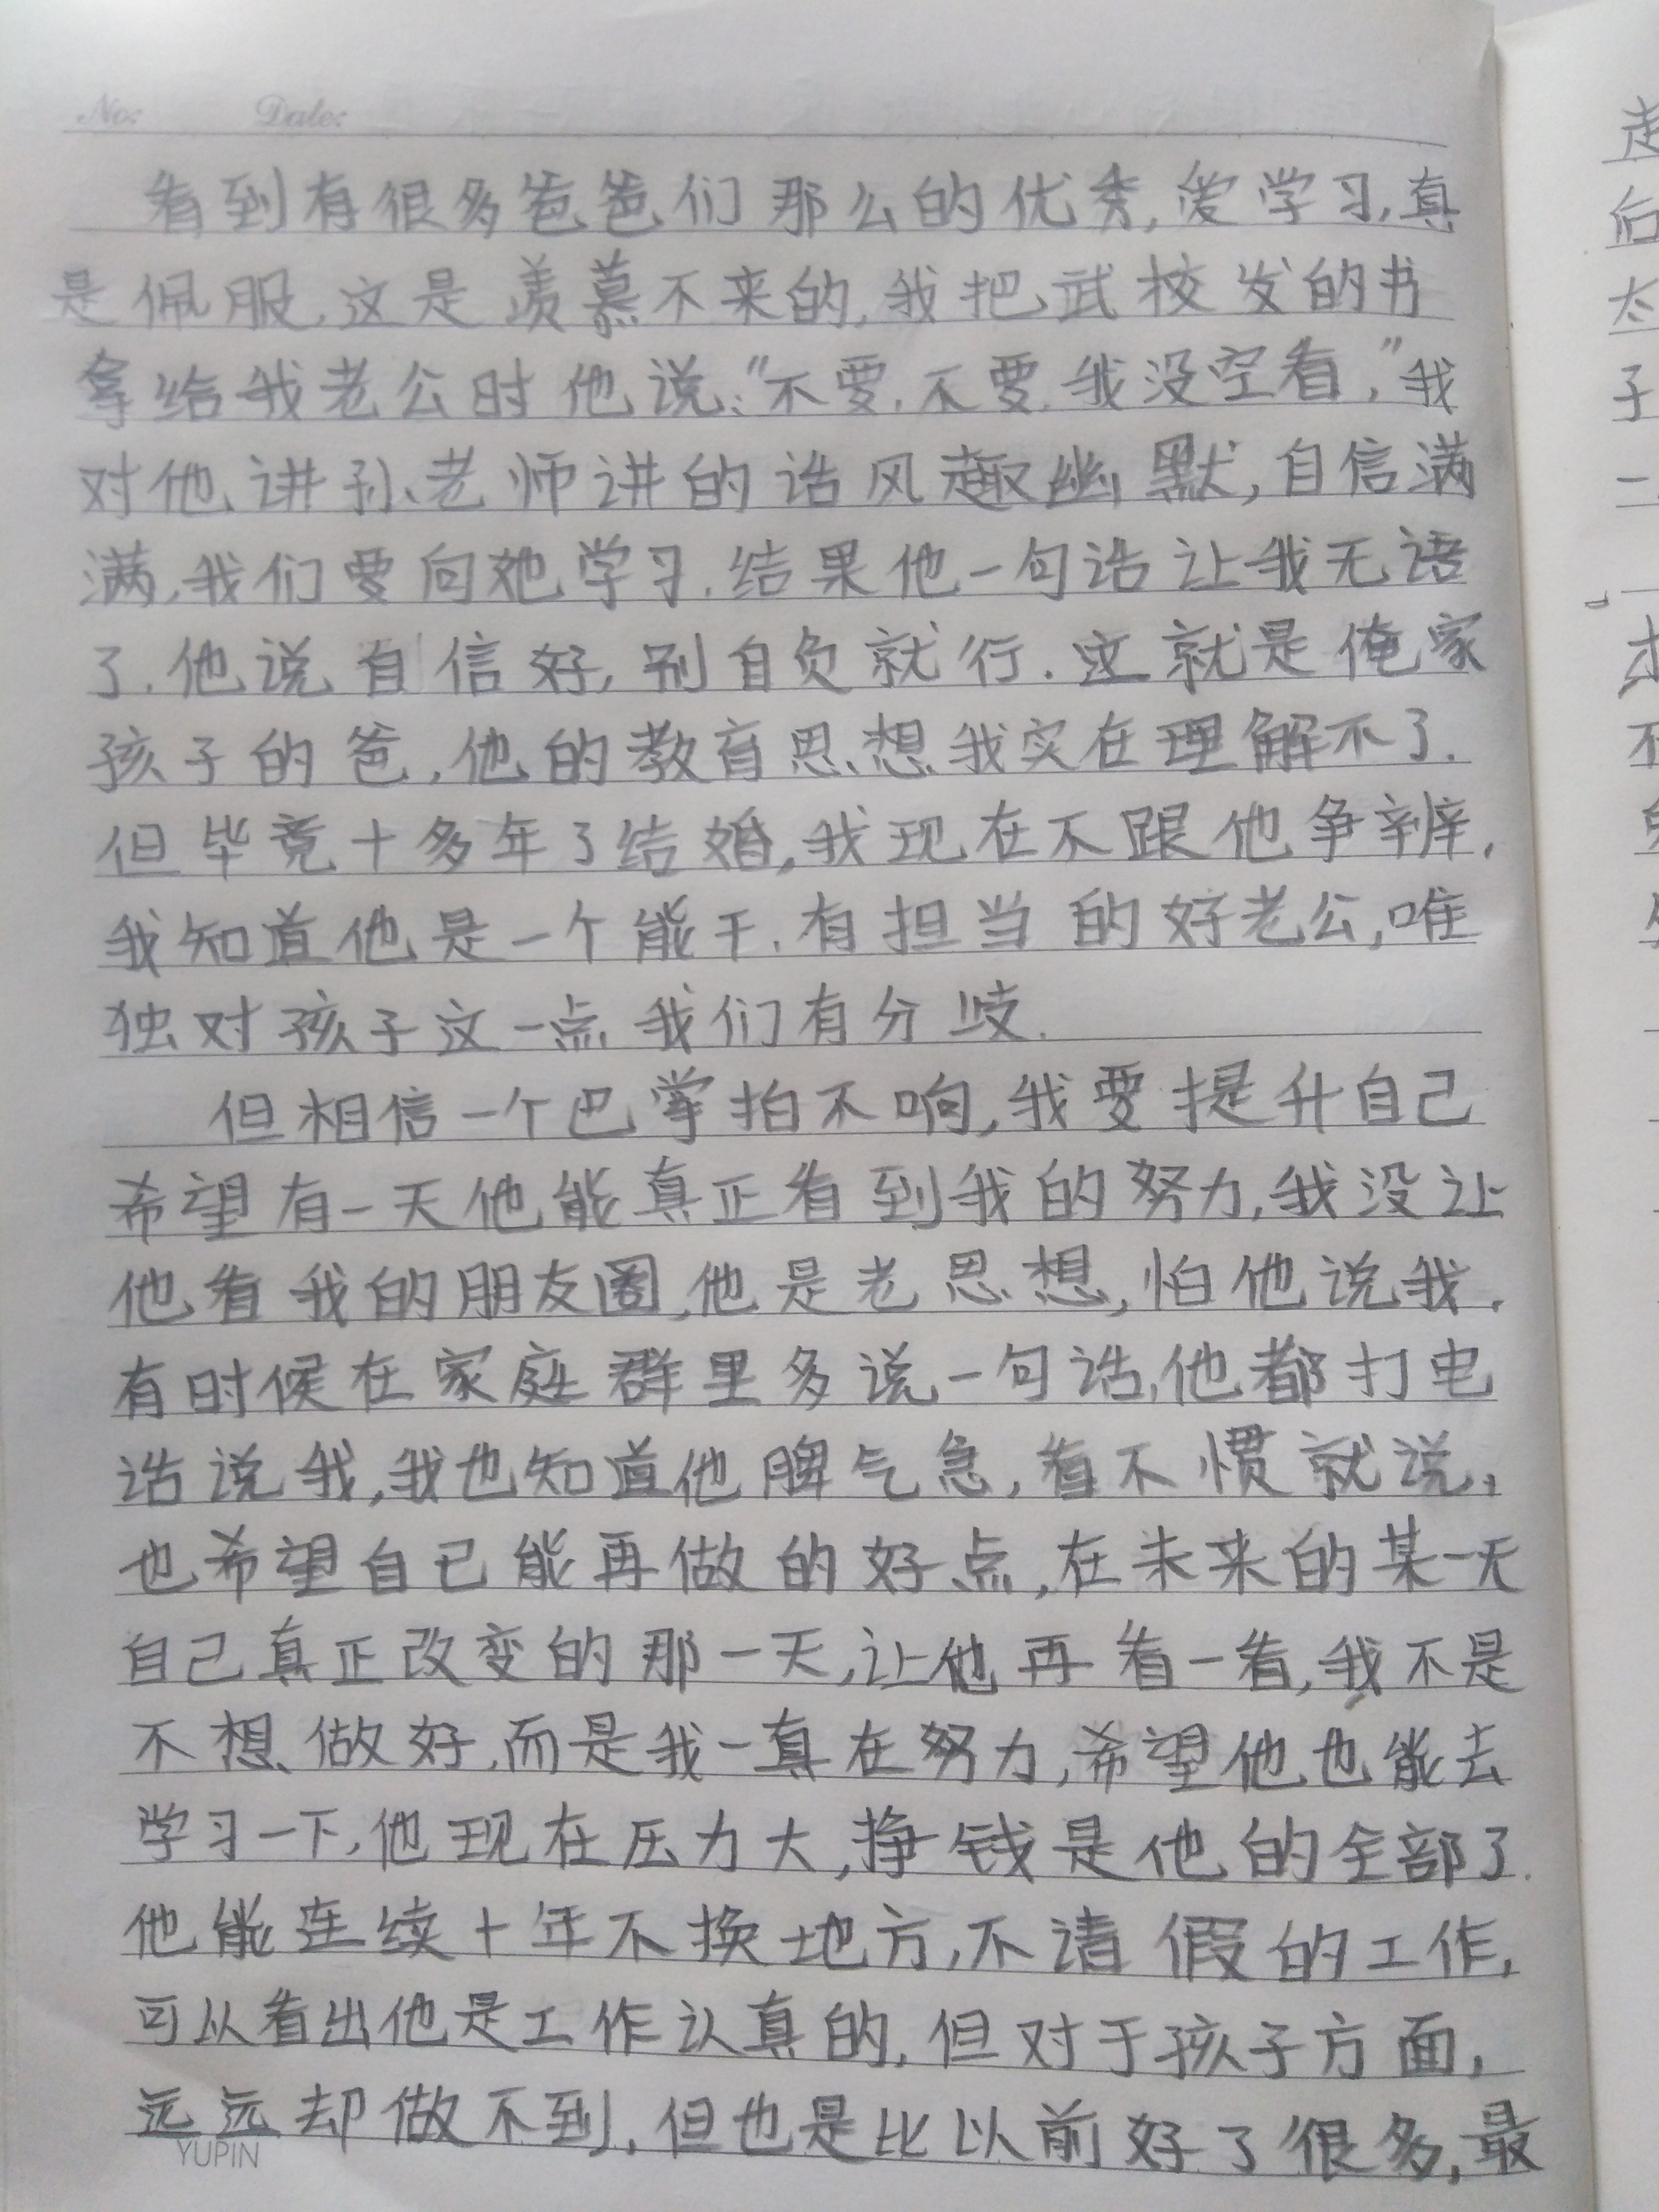 No:   Date:
看到有很多爸爸们那么的优秀,爱学习,真
是佩服,这是羡慕不来的,我把武校发的书
拿给我老公时他说:"不要,不要,我没空看,"我
对他讲孙老师讲的话风趣幽默,自信满
满,我们要向她学习.结果他一句话让我无语
了.他说自信好,别自负就行.这就是俺家
孩子的爸,他的教育思想我实在理解不了.
但毕竟十多年了结婚,我现在不跟他争辨,
我知道他是一个能干.有担当的好老公,唯
独对孩子这一点我们有分歧.
但相信一个巴掌拍不响,我要提升自己
希望有一天他能真正看到我的努力,我没让
他看我的朋友圈,他是老思想,怕他说我.
有时候在家庭群里多说一句话,他都打电
话说我,我也知道他脾气急,看不惯就说,
也希望自己能再做的好点,在未来的某一天
自己真正改变的那一天,让他再看一看,我不是
不想做好,而是我一真在努力,希望他也能去
学习一下,他现在压力大,挣钱是他的全部了.
他能连续十年不换地方,不请假的工作,
可以看出他是工作认真的,但对于孩子方面,
远远却做不到,但也是比以前好了很多,最
YUPIN
走
后
太
子
二
不